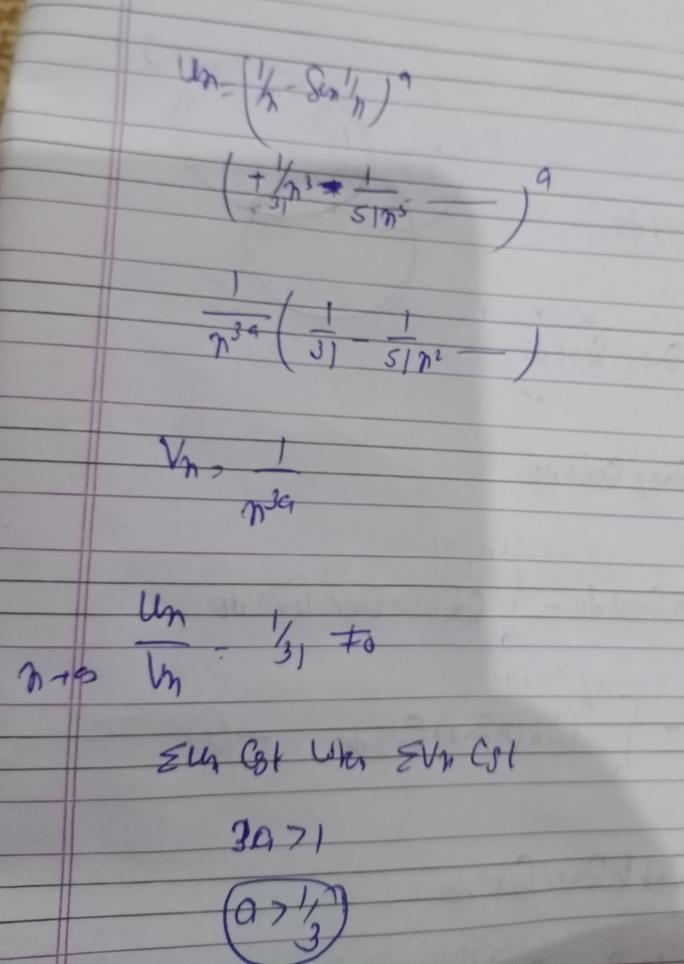 Un = (1/n - Sin 1/n)^a
(+ 1/3! n^3 - 1/5! n^5 ——)^a
1/n^3a (1/3! - 1/5! n^2 ——)
Vn = 1/n^3a
n→∞ Un/Vn = 1/3! ≠ 0
ΣUn Cgt when ΣVn Cgt
3a > 1
a > 1/3